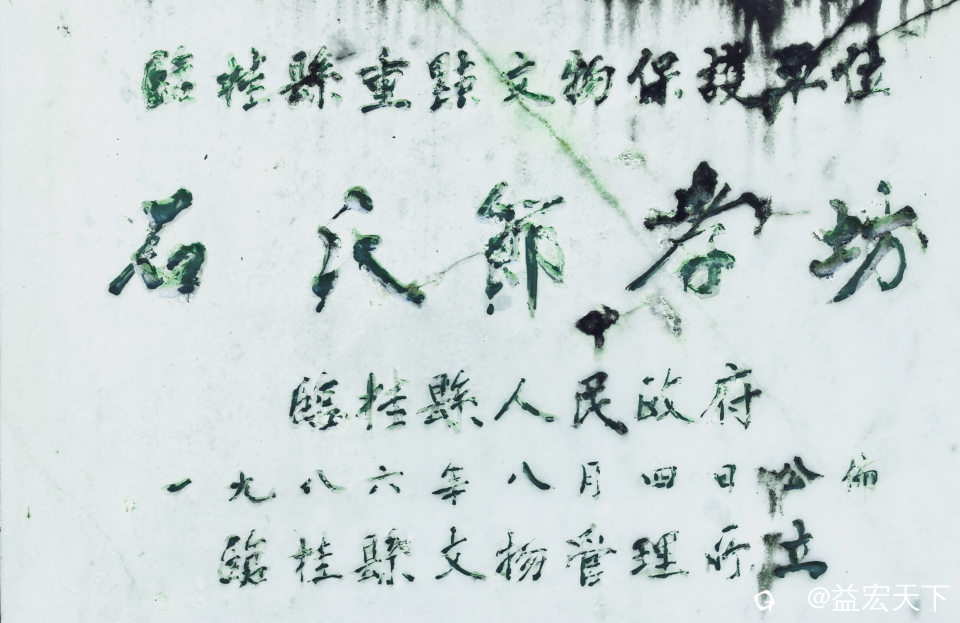 臨桂縣重點文物保護單位
石氏節孝坊
臨桂縣人民政府
一九八六年八月四日公佈
臨桂縣文物管理所立
@益宏天下